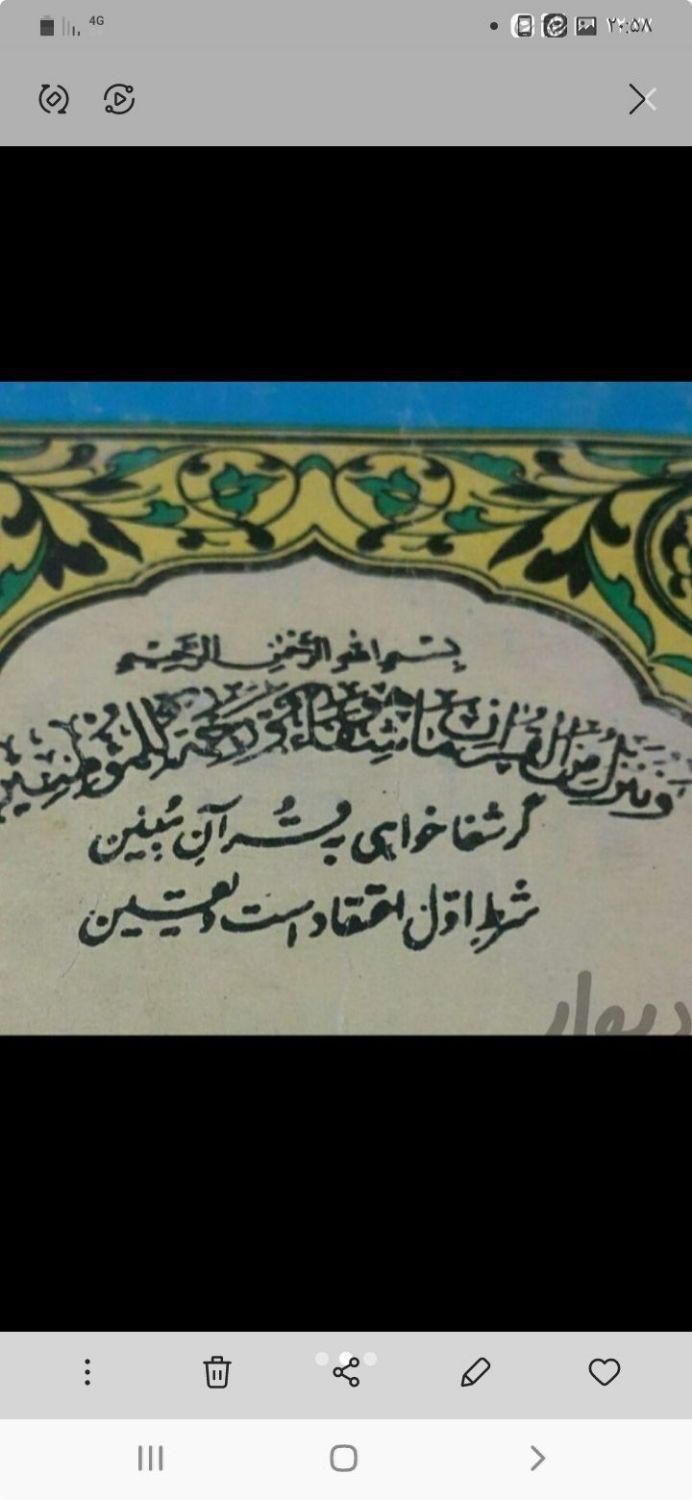 4G
۲۰:۵۸
بسم الله الرحمن الرحیم
وَنُنَزِّلُ مِنَ الْقُرْآنِ مَا هُوَ شِفَاءٌ وَرَحْمَةٌ لِلْمُؤْمِنِينَ
گر شفا خواهی ز قرآنِ مُبین
شرطِ اوّل اعتقاد است و یقین
دیوار